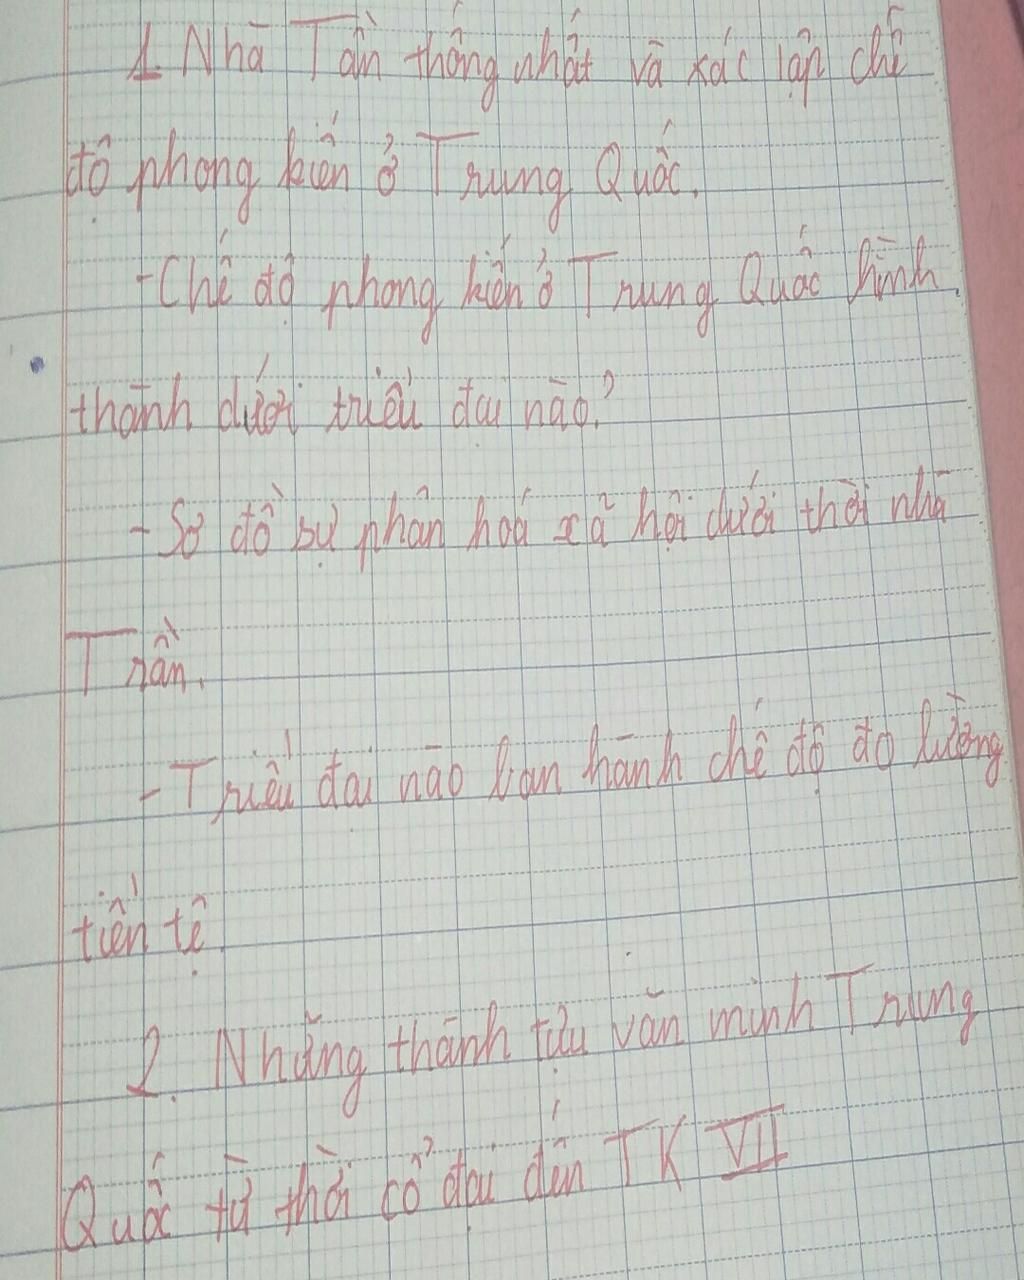 1. Nhà Tần thống nhất và xác lập chế
độ phong kiến ở Trung Quốc.
- Chế độ phong kiến ở Trung Quốc hình
thành dưới triều đại nào?
- Sơ đồ sự phân hoá xã hội dưới thời nhà
Trần.
- Triều đại nào ban hành chế độ đo lường
tiền tệ
2. Những thành tựu văn minh Trung
Quốc từ thời cổ đại đến TK VII